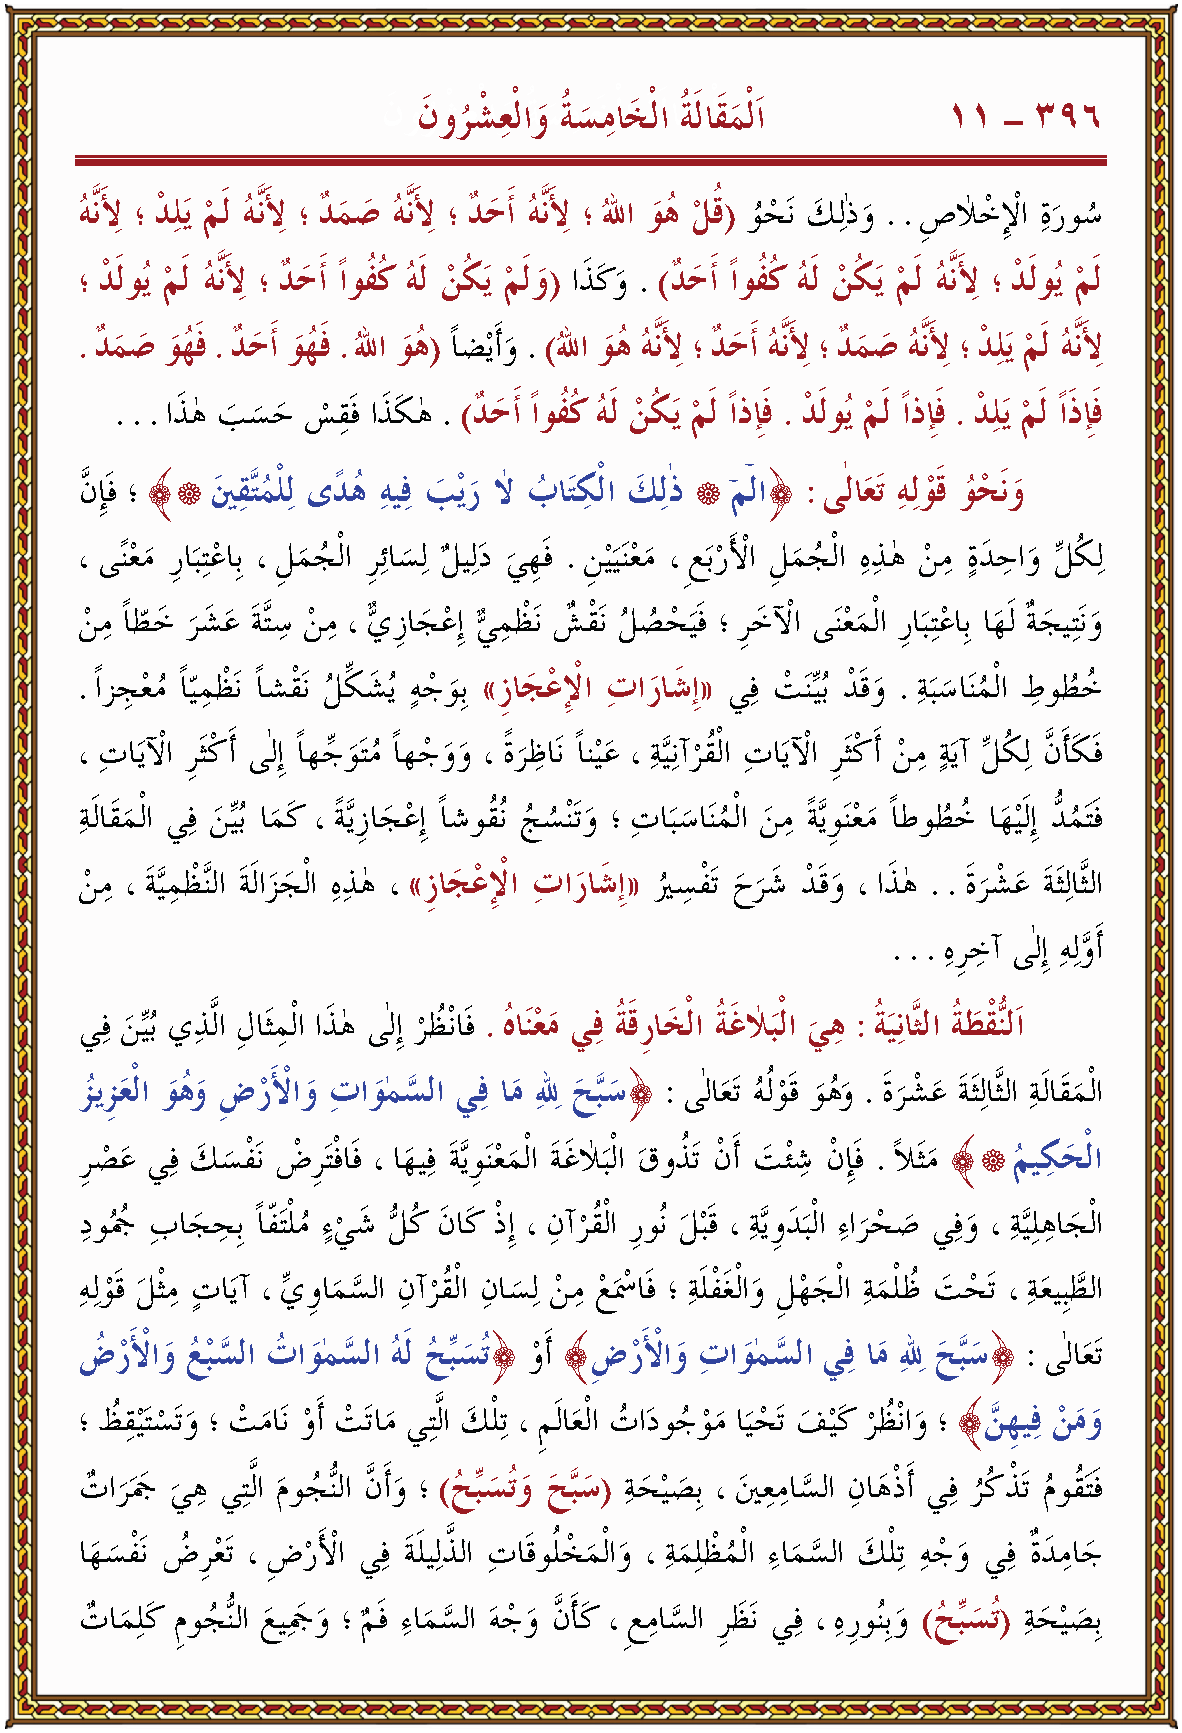 ٣٩٦ – ١١ اَلْمَقَالَةُ الْخَامِسَةُ وَالْعِشْرُونَ
سُورَةِ الْإِخْلٰاصِ . . وَذٰلِكَ نَحْوُ (قُلْ هُوَ اللهُ ؛ لِأَنَّهُ أَحَدٌ ؛ لِأَنَّهُ صَمَدٌ ؛ لِأَنَّهُ لَمْ يَلِدْ ؛ لِأَنَّهُ
لَمْ يُولَدْ ؛ لِأَنَّهُ لَمْ يَكُنْ لَهُ كُفُواً أَحَدٌ) . وَكَذَا (وَلَمْ يَكُنْ لَهُ كُفُواً أَحَدٌ ؛ لِأَنَّهُ لَمْ يُولَدْ ؛
لِأَنَّهُ لَمْ يَلِدْ ؛ لِأَنَّهُ صَمَدٌ ؛ لِأَنَّهُ أَحَدٌ ؛ لِأَنَّهُ هُوَ اللهُ) . وَأَيْضاً (هُوَ اللهُ . فَهُوَ أَحَدٌ . فَهُوَ صَمَدٌ .
فَإِذاً لَمْ يَلِدْ . فَإِذاً لَمْ يُولَدْ . فَإِذاً لَمْ يَكُنْ لَهُ كُفُواً أَحَدٌ) . هٰكَذَا فَقِسْ حَسَبَ هٰذَا . . .
وَنَحْوُ قَوْلِهِ تَعَالٰى : ﴿الٓمٓ ۞ ذٰلِكَ الْكِتَابُ لٰا رَيْبَ فِيهِ هُدًى لِلْمُتَّقِينَ ۞﴾ ؛ فَإِنَّ
لِكُلِّ وَاحِدَةٍ مِنْ هٰذِهِ الْجُمَلِ الْأَرْبَعِ ، مَعْنَيَيْنِ . فَهِيَ دَلِيلٌ لِسَائِرِ الْجُمَلِ ، بِاعْتِبَارِ مَعْنًى ،
وَنَتِيجَةٌ لَهَا بِاعْتِبَارِ الْمَعْنَى الْآخَرِ ؛ فَيَحْصُلُ نَقْشٌ نَظْمِيٌّ إِعْجَازِيٌّ ، مِنْ سِتَّةَ عَشَرَ خَطّاً مِنْ
خُطُوطِ الْمُنَاسَبَةِ . وَقَدْ بُيِّنَتْ فِي «إِشَارَاتِ الْإِعْجَازِ» بِوَجْهٍ يُشَكِّلُ نَقْشاً نَظْمِيّاً مُعْجِزاً .
فَكَأَنَّ لِكُلِّ آيَةٍ مِنْ أَكْثَرِ الْآيَاتِ الْقُرْآنِيَّةِ ، عَيْناً نَاظِرَةً ، وَوَجْهاً مُتَوَجِّهاً إِلٰى أَكْثَرِ الْآيَاتِ ،
فَتَمُدُّ إِلَيْهَا خُطُوطاً مَعْنَوِيَّةً مِنَ الْمُنَاسَبَاتِ ؛ وَتَنْسُجُ نُقُوشاً إِعْجَازِيَّةً ، كَمَا بُيِّنَ فِي الْمَقَالَةِ
الثَّالِثَةَ عَشْرَةَ . . هٰذَا ، وَقَدْ شَرَحَ تَفْسِيرُ «إِشَارَاتِ الْإِعْجَازِ» ، هٰذِهِ الْجَزَالَةَ النَّظْمِيَّةَ ، مِنْ
أَوَّلِهِ إِلٰى آخِرِهِ . . .
اَلنُّقْطَةُ الثَّانِيَةُ : هِيَ الْبَلٰاغَةُ الْخَارِقَةُ فِي مَعْنَاهُ . فَانْظُرْ إِلٰى هٰذَا الْمِثَالِ الَّذِي بُيِّنَ فِي
الْمَقَالَةِ الثَّالِثَةَ عَشْرَةَ . وَهُوَ قَوْلُهُ تَعَالٰى : ﴿سَبَّحَ لِلهِ مَا فِي السَّمٰوَاتِ وَالْأَرْضِ وَهُوَ الْعَزِيزُ
الْحَكِيمُ ۞﴾ مَثَلاً . فَإِنْ شِئْتَ أَنْ تَذُوقَ الْبَلٰاغَةَ الْمَعْنَوِيَّةَ فِيهَا ، فَافْتَرِضْ نَفْسَكَ فِي عَصْرِ
الْجَاهِلِيَّةِ ، وَفِي صَحْرَاءِ الْبَدَوِيَّةِ ، قَبْلَ نُورِ الْقُرْآنِ ، إِذْ كَانَ كُلُّ شَيْءٍ مُلْتَفّاً بِحِجَابِ جُمُودِ
الطَّبِيعَةِ ، تَحْتَ ظُلْمَةِ الْجَهْلِ وَالْغَفْلَةِ ؛ فَاسْمَعْ مِنْ لِسَانِ الْقُرْآنِ السَّمَاوِيِّ ، آيَاتٍ مِثْلَ قَوْلِهِ
تَعَالٰى : ﴿سَبَّحَ لِلهِ مَا فِي السَّمٰوَاتِ وَالْأَرْضِ﴾ أَوْ ﴿تُسَبِّحُ لَهُ السَّمٰوَاتُ السَّبْعُ وَالْأَرْضُ
وَمَنْ فِيهِنَّ﴾ ؛ وَانْظُرْ كَيْفَ تَحْيَا مَوْجُودَاتُ الْعَالَمِ ، تِلْكَ الَّتِي مَاتَتْ أَوْ نَامَتْ ؛ وَتَسْتَيْقِظُ ؛
فَتَقُومُ تَذْكُرُ فِي أَذْهَانِ السَّامِعِينَ ، بِصَيْحَةِ (سَبَّحَ وَتُسَبِّحُ) ؛ وَأَنَّ النُّجُومَ الَّتِي هِيَ جَمَرَاتٌ
جَامِدَةٌ فِي وَجْهِ تِلْكَ السَّمَاءِ الْمُظْلِمَةِ ، وَالْمَخْلُوقَاتِ الذَّلِيلَةَ فِي الْأَرْضِ ، تَعْرِضُ نَفْسَهَا
بِصَيْحَةِ (تُسَبِّحُ) وَبِنُورِهِ ، فِي نَظَرِ السَّامِعِ ، كَأَنَّ وَجْهَ السَّمَاءِ فَمٌ ؛ وَجَمِيعَ النُّجُومِ كَلِمَاتٌ